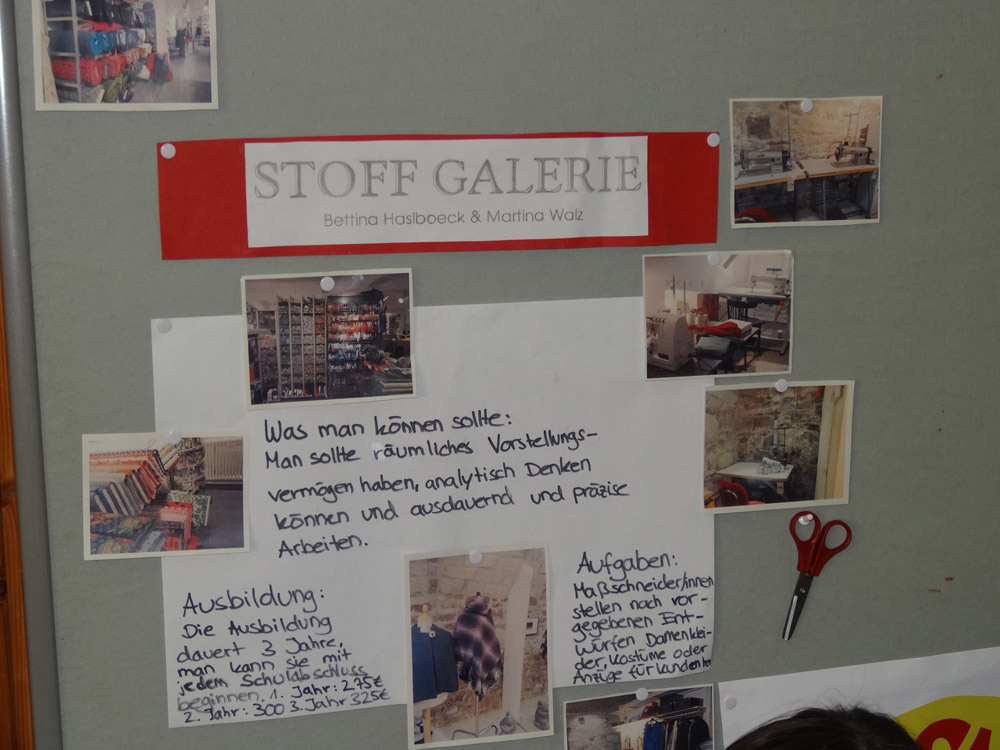 STOFF GALERIE
Bettina Haslboeck & Martina Walz
Was man können sollte:
Man sollte räumliches Vorstellungs-
vermögen haben, analytisch Denken
können und ausdauernd und präzise
Arbeiten.
Ausbildung:
Die Ausbildung
dauert 3 Jahre,
man kann sie mit
jedem Schulabschluss
beginnen. 1. Jahr: 275€
2. Jahr: 300 3. Jahr 325€
Aufgaben:
Maßschneider/innen
stellen nach vor-
gegebenen Ent-
würfen Damenklei-
der, Kostüme oder
Anzüge für Kunden her